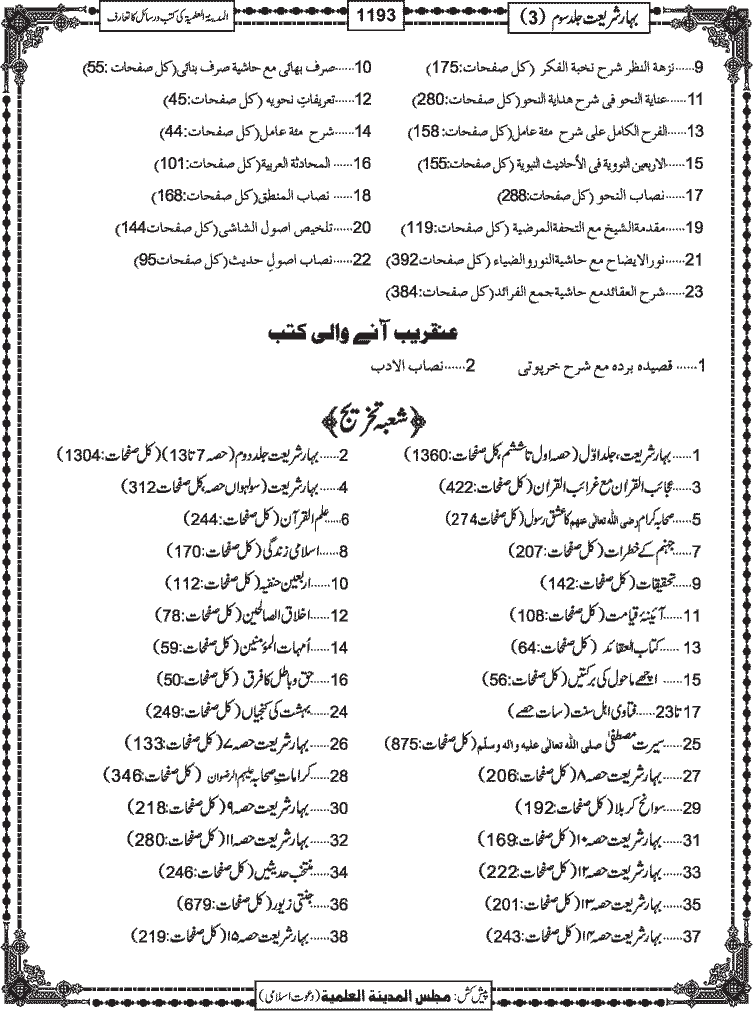 بہارِ شریعت جلد سوم (3)
1193
المدینۃ العلمیۃ کی کتب ورسائل کا تعارف
9.....نزهة النظر شرح نخبة الفكر (کل صفحات:175)
10.....صرف بهائی مع حاشية صرف بنائی (کل صفحات:55)
11.....عناية النحو فی شرح هداية النحو(کل صفحات:280)
12.....تعريفاتِ نحويه (کل صفحات:45)
13.....الفرح الكامل على شرح مئة عامل(کل صفحات:158)
14.....شرح مئة عامل(کل صفحات:44)
15.....الاربعين النووية فی الأحاديث النبوية (کل صفحات:155)
16..... المحادثة العربية(کل صفحات:101)
17.....نصاب النحو (کل صفحات:288)
18..... نصاب المنطق(کل صفحات:168)
19.....مقدمة الشيخ مع التحفة المرضية (کل صفحات:119)
20.....تلخيص اصول الشاشی(کل صفحات144)
21.....نور الايضاح مع حاشية النور والضياء (کل صفحات392)
22.....نصاب اصولِ حديث(کل صفحات95)
23.....شرح العقائد مع حاشية جمع الفرائد(کل صفحات:384)
عنقریب آنے والی کتب
1..... قصیدہ بردہ مع شرح خرپوتی
2.....نصاب الادب
﴿شعبہ تخریج﴾
1.....بہارشریعت، جلد اوّل (حصہ اول تا ششم، کل صفحات:1360)
2.....بہارشریعت جلد دوم (حصہ 7تا13)(کل صفحات:1304)
3.....عجائب القران مع غرائب القران (کل صفحات:422)
4.....بہارشریعت (سولہواں حصہ، کل صفحات312)
5.....صحابہ کرام رضی اللہ تعالٰی عنھم کا عشق رسول (کل صفحات274)
6.....علم القرآن (کل صفحات:244)
7.....جہنم کے خطرات (کل صفحات:207)
8.....اسلامی زندگی (کل صفحات:170)
9.....تحقیقات (کل صفحات:142)
10.....اربعین حنفیہ (کل صفحات:112)
11.....آئینۂ قیامت (کل صفحات:108)
12.....اخلاق الصالحین (کل صفحات:78)
13.....کتاب العقائد (کل صفحات:64)
14.....اُمہات المؤمنین (کل صفحات:59)
15.....اچھے ماحول کی برکتیں (کل صفحات:56)
16.....حق و باطل کا فرق (کل صفحات:50)
17تا23.....فتاوی اہل سنت (سات حصے)
24.....بہشت کی کنجیاں (کل صفحات:249)
25.....سیرت مصطفیٰ صلی اللہ تعالٰی علیہ والہ وسلّم (کل صفحات:875)
26.....بہارشریعت حصہ ۷ (کل صفحات:133)
27.....بہارشریعت حصہ ۸ (کل صفحات:206)
28.....کراماتِ صحابہ علیہم الرضوان (کل صفحات:346)
29.....سوانح کربلا (کل صفحات:192)
30.....بہارشریعت حصہ ۹ (کل صفحات:218)
31.....بہارشریعت حصہ ۱۰ (کل صفحات:169)
32.....بہارشریعت حصہ ۱۱ (کل صفحات:280)
33.....بہارشریعت حصہ ۱۲ (کل صفحات:222)
34.....منتخب حدیثیں (کل صفحات:246)
35.....بہارشریعت حصہ ۱۳ (کل صفحات:201)
36.....جنتی زیور (کل صفحات:679)
37.....بہارشریعت حصہ ۱۴ (کل صفحات:243)
38.....بہارشریعت حصہ ۱۵ (کل صفحات:219)
پیش کش: مجلس المدینۃ العلمیۃ (دعوت اسلامی)